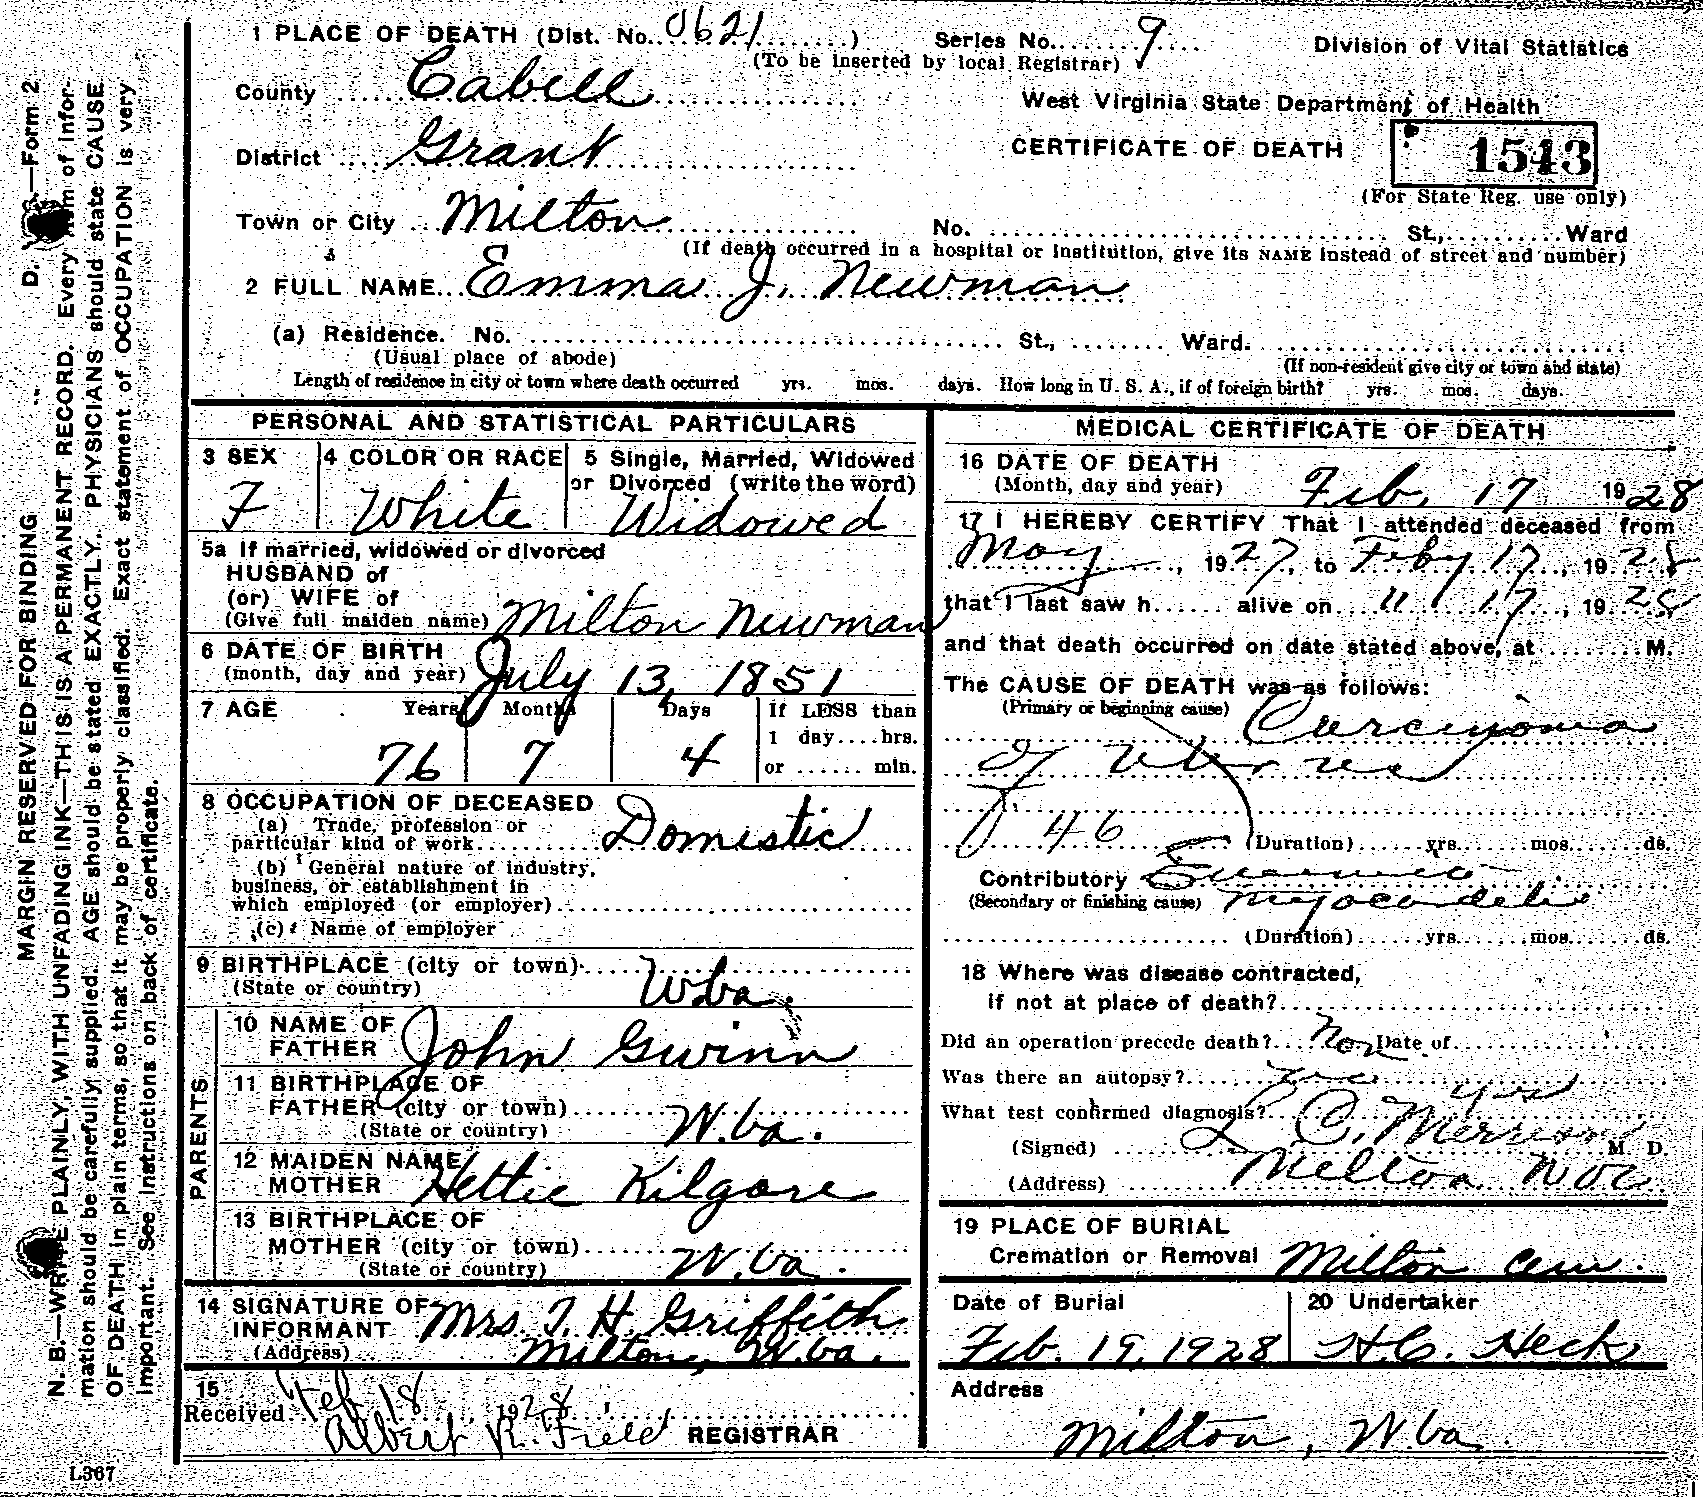 1 PLACE OF DEATH (Dist. No. 0621 ) Series No. 9
(To be inserted by local Registrar)
Division of Vital Statistics
County Cabell
West Virginia State Department of Health
District Grant
CERTIFICATE OF DEATH 1543
(For State Reg. use only)
Town or City Milton
No. St., Ward
(If death occurred in a hospital or institution, give its NAME instead of street and number)
2 FULL NAME Emma J. Newman
(a) Residence. No. St., Ward.
(Usual place of abode) (If non-resident give city or town and state)
Length of residence in city or town where death occurred yrs. mos. days. How long in U. S. A., if of foreign birth? yrs. mos. days.
PERSONAL AND STATISTICAL PARTICULARS
3 SEX
F
4 COLOR OR RACE
White
5 Single, Married, Widowed
or Divorced (write the word)
Widowed
5a If married, widowed or divorced
HUSBAND of
(or) WIFE of
(Give full maiden name) Milton Newman
6 DATE OF BIRTH
(month, day and year) July 13, 1851
7 AGE Years Months Days If LESS than
1 day....hrs.
76 7 4 or ...... min.
8 OCCUPATION OF DECEASED
(a) Trade, profession or
particular kind of work Domestic
(b) General nature of industry,
business, or establishment in
which employed (or employer)
(c) Name of employer
9 BIRTHPLACE (city or town)
(State or country) W.Va.
PARENTS
10 NAME OF
FATHER John Gwinn
11 BIRTHPLACE OF
FATHER (city or town)
(State or country) W.Va.
12 MAIDEN NAME
MOTHER Hettie Kilgore
13 BIRTHPLACE OF
MOTHER (city or town)
(State or country) W.Va.
14 SIGNATURE OF
INFORMANT Mrs T. H. Griffith
(Address) Milton, W.Va.
15
Received Feb 18 1928
Albert R. Field REGISTRAR
MEDICAL CERTIFICATE OF DEATH
16 DATE OF DEATH
(Month, day and year) Feb. 17 1928
17 I HEREBY CERTIFY That I attended deceased from
May, 1927, to Feby 17, 1928
that I last saw h...... alive on 11 17, 1928
and that death occurred on date stated above, at M.
The CAUSE OF DEATH was as follows:
(Primary or beginning cause) Carcinoma
of Uterus
46
(Duration) yrs. mos. ds.
Contributory
(Secondary or finishing cause) myocardelis
(Duration) yrs. mos. ds.
18 Where was disease contracted,
if not at place of death?
Did an operation precede death? Non Date of
Was there an autopsy? no
What test confirmed diagnosis? yes
(Signed) L C. Morrison M. D.
(Address) Milton W Va
19 PLACE OF BURIAL
Cremation or Removal Milton Cem.
Date of Burial
Feb. 19, 1928
20 Undertaker
H.C. Heck
Address
Milton, W.Va
D. —Form 2
MARGIN RESERVED FOR BINDING
N. B.—WRITE PLAINLY, WITH UNFADING INK—THIS IS A PERMANENT RECORD. Every item of infor-
mation should be carefully supplied. AGE should be stated EXACTLY. PHYSICIANS should state CAUSE
OF DEATH in plain terms, so that it may be properly classified. Exact statement of OCCUPATION is very
important. See instructions on back of certificate.
L367